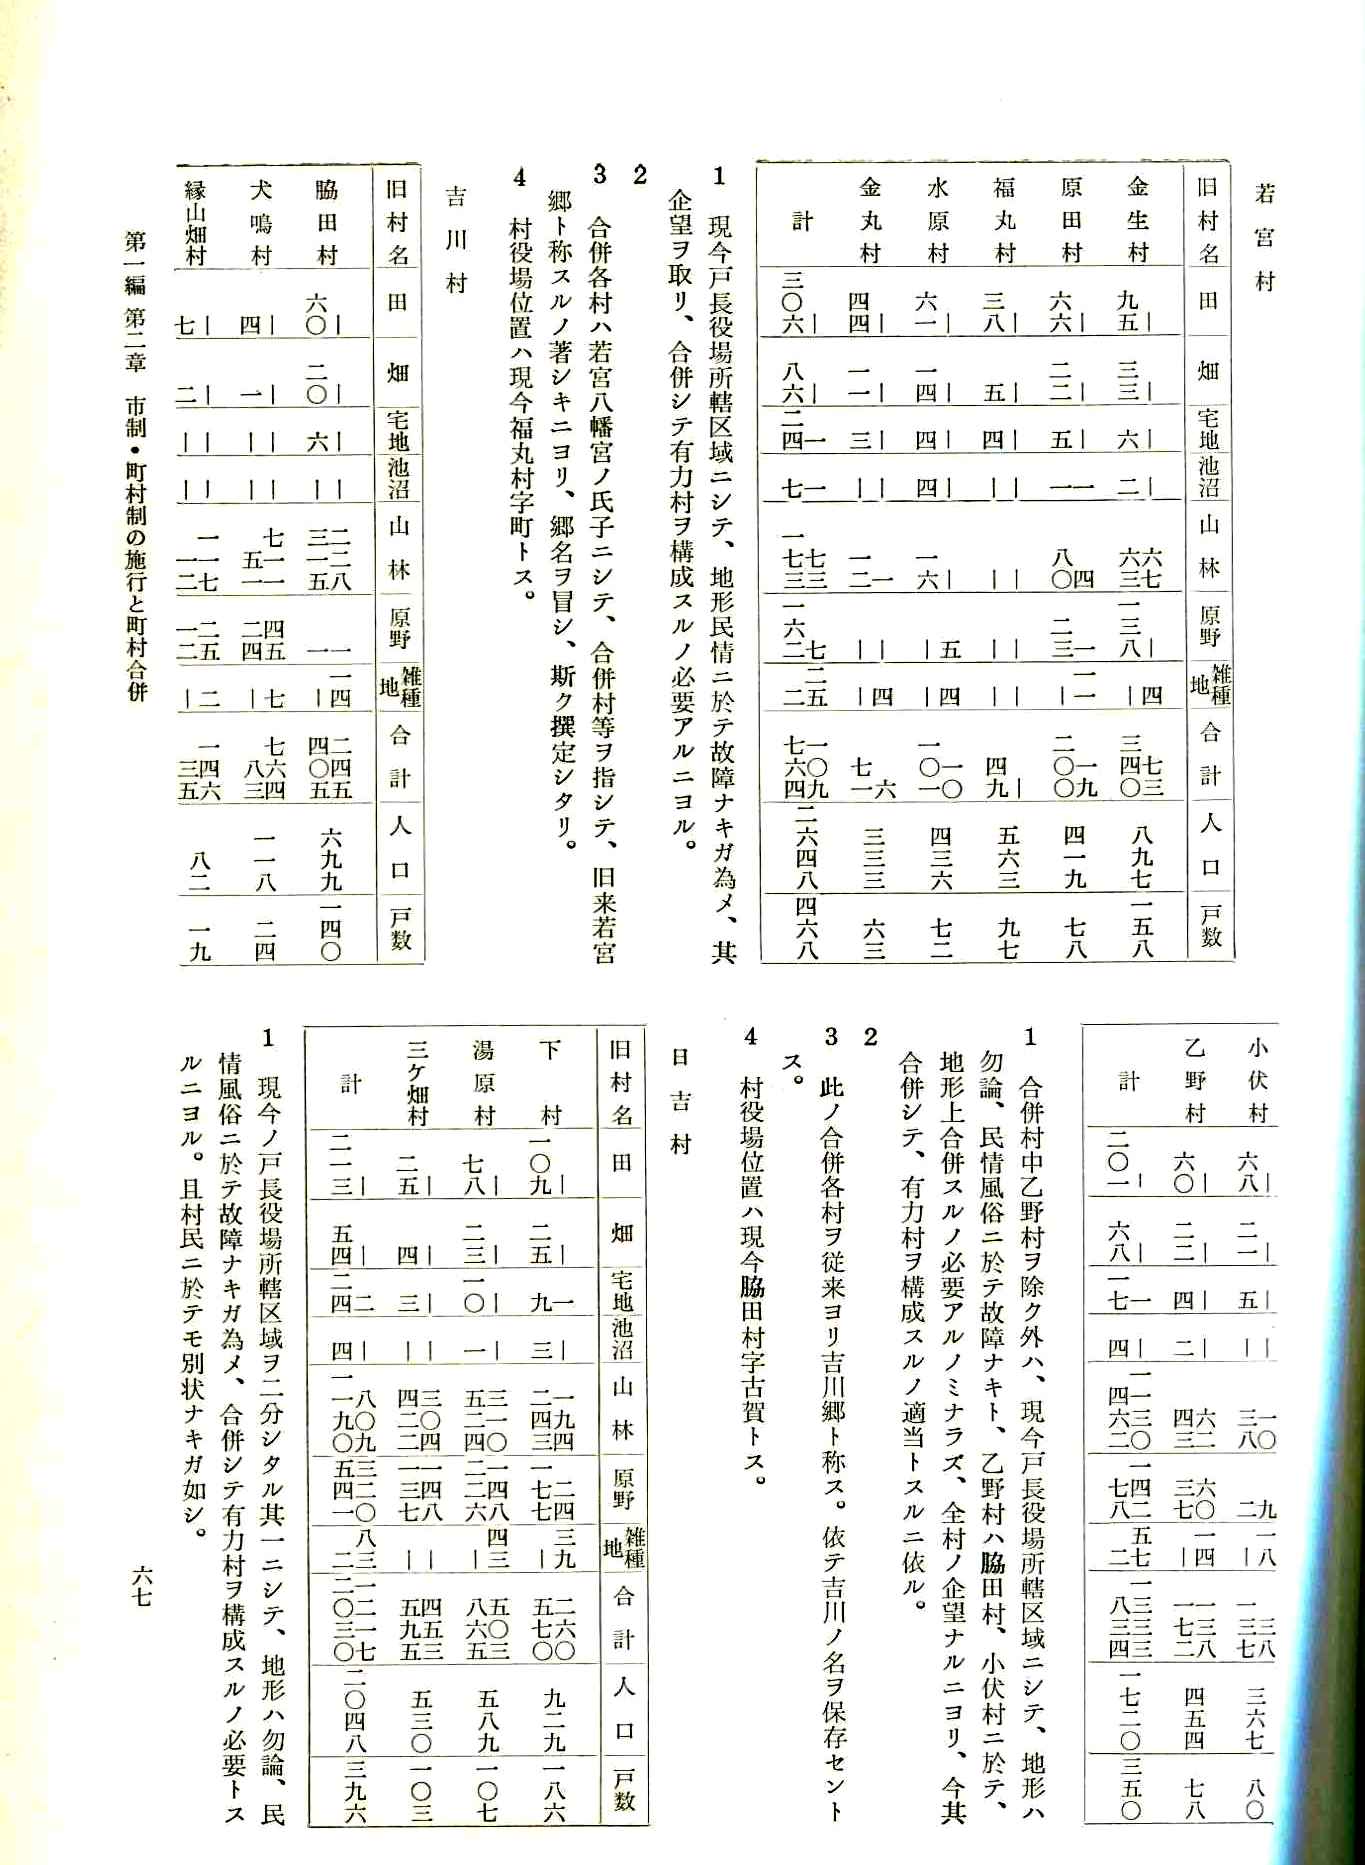 若宮村
旧村名 田 畑 宅地 池沼 山林 原野 雑種地 合計 人口 戸数
金生村 ｜ 九五 ｜ 三三 ｜ 六 ｜ 二 六七 六三 ｜ 一三八 四 ｜ 七三 三四〇 八九七 一五八
原田村 ｜ 六六 ｜ 二二 ｜ 五 一 一 四 八〇 一 二三 一一 ｜ 一九 二〇〇 四一九 七八
福丸村 ｜ 三八 ｜ 五 ｜ 四 ｜ ｜ ｜ ｜ ｜ ｜ ｜ ｜ ｜ 四九 五六三 九七
水原村 ｜ 六一 ｜ 一四 ｜ 四 ｜ 四 ｜ 一六 五 ｜ 四 ｜ 一〇 一〇一 四三六 七二
金丸村 ｜ 四四 ｜ 一一 ｜ 三 ｜ ｜ 一 一二 ｜ ｜ 四 ｜ 六 七一 三三三 六三
計 ｜ 三〇六 ｜ 八六 一 二四 一 七 七三 一七三 七 一六二 二五 二 一〇九 七六四 二六四八 四六八
1 現今戸長役場所轄区域ニシテ、地形民情ニ於テ故障ナキガ為メ、其
企望ヲ取リ、合併シテ有力村ヲ構成スルノ必要アルニヨル。
2
3 合併各村ハ若宮八幡宮ノ氏子ニシテ、合併村等ヲ指シテ、旧来若宮
郷ト称スルノ著シキニヨリ、郷名ヲ冒シ、斯ク撰定シタリ。
4 村役場位置ハ現今福丸村字町トス。
吉川村
旧村名 田 畑 宅地 池沼 山林 原野 雑種地 合計 人口 戸数
脇田村 ｜ 六〇 ｜ 二〇 ｜ 六 ｜ ｜ 二二八 三一五 一 一 一四 ｜ 二四五 四〇五 六九九 一四〇
犬鳴村 ｜ 四 ｜ 一 ｜ ｜ ｜ ｜ 一一 七五一 四五 二四 七 ｜ 六四 七八三 一一八 二四
縁山畑村 ｜ 七 ｜ 二 ｜ ｜ ｜ ｜ 一七 一一二 二五 一二 二 ｜ 四六 一三五 八二 一九
小伏村 ｜ 六八 ｜ 二一 ｜ 五 ｜ ｜ 一〇 三八 九 二 一八 ｜ 三八 一三七 三六七 八〇
乙野村 ｜ 六〇 ｜ 二二 ｜ 四 ｜ 二 六二 四三 六〇 三七 一四 ｜ 一三八 一七二 四五四 七八
計 ｜ 二〇一 ｜ 六八 一 一七 ｜ 四 一三〇 一四六二 一四二 七八 五七 二 三三三 一八三四 一七二〇 三五〇
1 合併村中乙野村ヲ除ク外ハ、現今戸長役場所轄区域ニシテ、地形ハ
勿論、民情風俗ニ於テ故障ナキト、乙野村ハ脇田村、小伏村ニ於テ、
地形上合併スルノ必要アルノミナラズ、全村ノ企望ナルニヨリ、今其
合併シテ、有力村ヲ構成スルノ適当トスルニ依ル。
2
3 此ノ合併各村ヲ従来ヨリ吉川郷ト称ス。依テ吉川ノ名ヲ保存セント
ス。
4 村役場位置ハ現今脇田村字古賀トス。
日吉村
旧村名 田 畑 宅地 池沼 山林 原野 雑種地 合計 人口 戸数
下村 ｜ 一〇九 ｜ 二五 一 九 ｜ 三 一九四 二四三 二四 一七七 三九 ｜ 二六〇 五七〇 九二九 一八六
湯原村 ｜ 七八 ｜ 二三 ｜ 一〇 ｜ 一 三一〇 五二四 一四八 二二六 四三 ｜ 五〇三 八六五 五八九 一〇七
三ケ畑村 ｜ 二五 ｜ 四 ｜ 三 ｜ ｜ 三〇四 四二二 一四八 一三七 ｜ ｜ 四五三 五九五 五三〇 一〇三
計 ｜ 二一三 ｜ 五四 二 二四 ｜ 四 八〇九 一一九〇 三二〇 五四一 八三 二 一二一七 二〇三〇 二〇四八 三九六
1 現今ノ戸長役場所轄区域ヲ二分シタル其一ニシテ、地形ハ勿論、民
情風俗ニ於テ故障ナキガ為メ、合併シテ有力村ヲ構成スルノ必要トス
ルニヨル。且村民ニ於テモ別状ナキガ如シ。
第一編 第二章 市制・町村制の施行と町村合併
六七